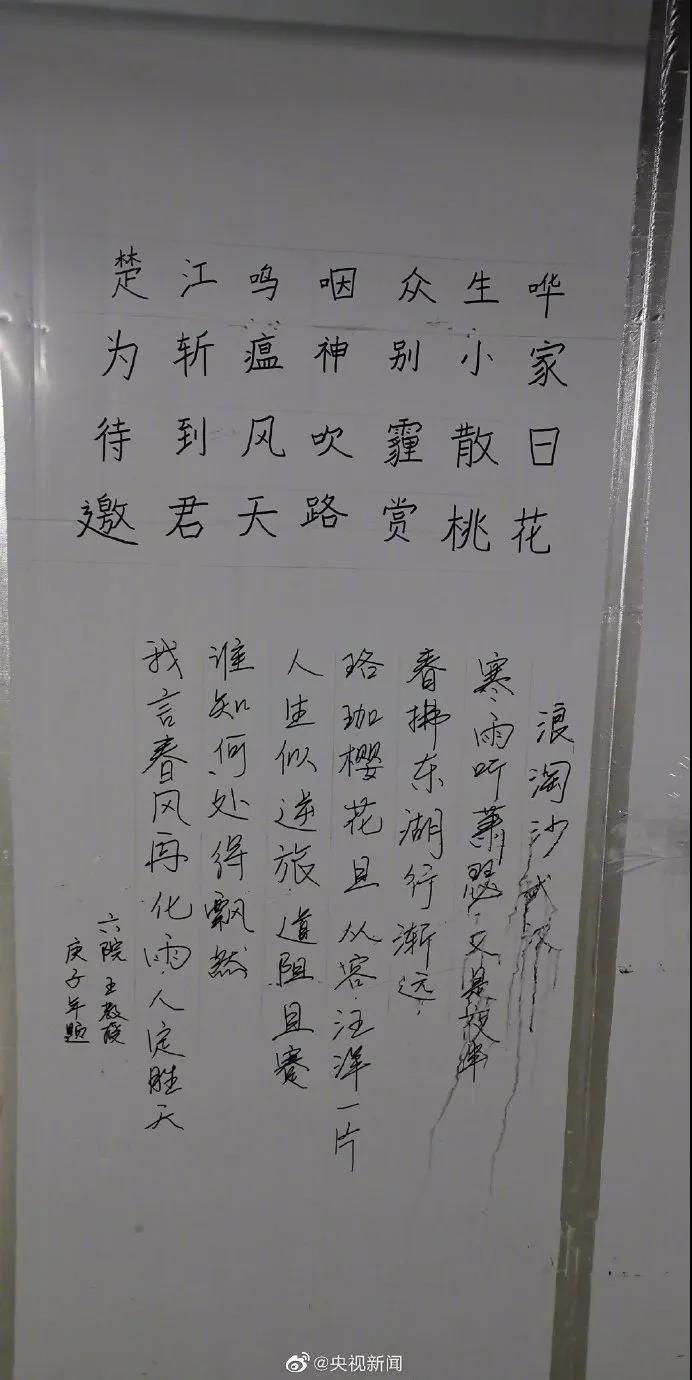 楚江鸣咽众生哗
为斩瘟神别小家
待到风吹霾散日
邀君天路赏桃花
浪淘沙 武汉
寒雨听萧瑟,又是夜半
春拂东湖行渐远,
珞珈樱花且从容,汪洋一片
人生似逆旅,道阻且蹇
谁知何处得飘然
我言春风再化雨,人定胜天
六院 王教授
庚子年题
@央视新闻